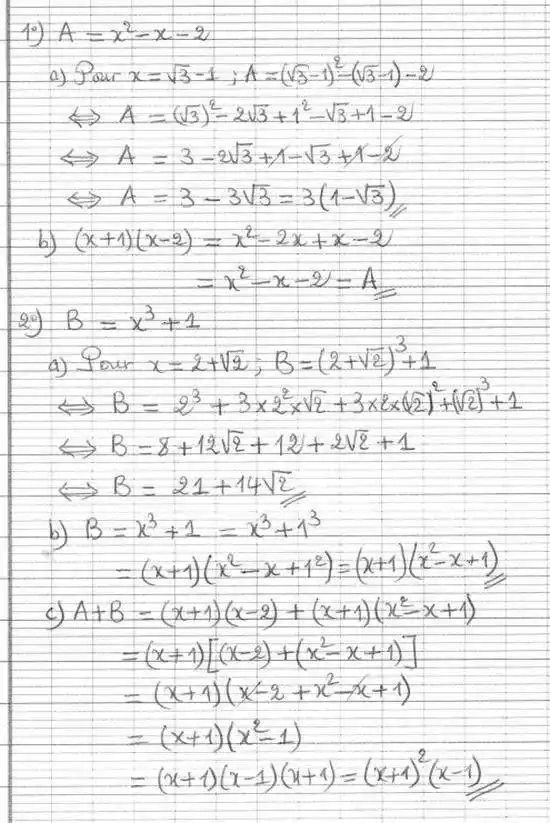 1°) A = x² - x - 2
a) Pour x = √3 - 1 ; A = (√3 - 1)² - (√3 - 1) - 2
⟺ A = (√3)² - 2√3 + 1² - √3 + 1 - 2
⟺ A = 3 - 2√3 + 1 - √3 + 1 - 2
⟺ A = 3 - 3√3 = 3(1 - √3)
b) (x+1)(x-2) = x² - 2x + x - 2
= x² - x - 2 = A
2°) B = x³ + 1
a) Pour x = 2+√2 ; B = (2+√2)³ + 1
⟺ B = 2³ + 3×2²×√2 + 3×2×(√2)² + (√2)³ + 1
⟺ B = 8 + 12√2 + 12 + 2√2 + 1
⟺ B = 21 + 14√2
b) B = x³ + 1 = x³ + 1³
= (x+1)(x² - x + 1²) = (x+1)(x² - x + 1)
c) A+B = (x+1)(x-2) + (x+1)(x² - x + 1)
= (x+1)[(x-2) + (x² - x + 1)]
= (x+1)(x - 2 + x² - x + 1)
= (x+1)(x² - 1)
= (x+1)(x-1)(x+1) = (x+1)²(x-1)